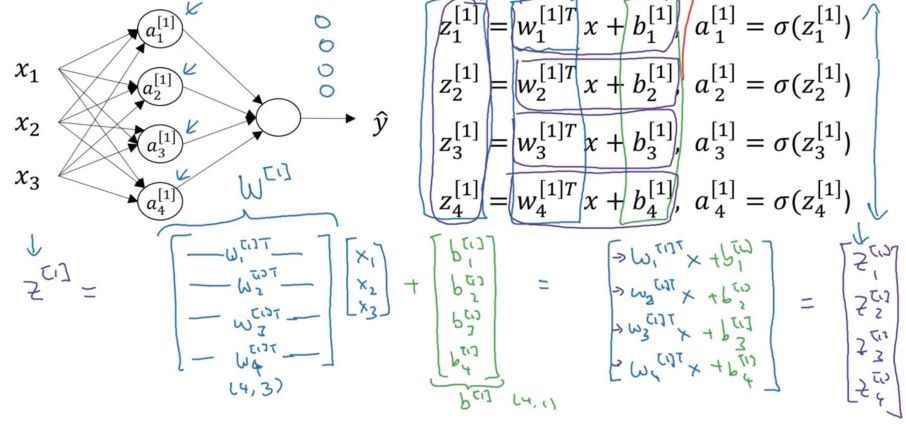 x₁
x₂
x₃
a₁^[1]
a₂^[1]
a₃^[1]
a₄^[1]
ŷ
z₁^[1] = w₁^[1]T x + b₁^[1], a₁^[1] = σ(z₁^[1])
z₂^[1] = w₂^[1]T x + b₂^[1], a₂^[1] = σ(z₂^[1])
z₃^[1] = w₃^[1]T x + b₃^[1], a₃^[1] = σ(z₃^[1])
z₄^[1] = w₄^[1]T x + b₄^[1], a₄^[1] = σ(z₄^[1])
W^[1]
z^[1] =
w₁^[1]T
w₂^[1]T
w₃^[1]T
w₄^[1]T
(4,3)
x₁
x₂
x₃
+
b₁^[1]
b₂^[1]
b₃^[1]
b₄^[1]
b^[1] (4,1)
=
→ w₁^[1]T x + b₁^[1]
→ w₂^[1]T x + b₂^[1]
→ w₃^[1]T x + b₃^[1]
→ w₄^[1]T x + b₄^[1]
=
z₁^[1]
z₂^[1]
z₃^[1]
z₄^[1]